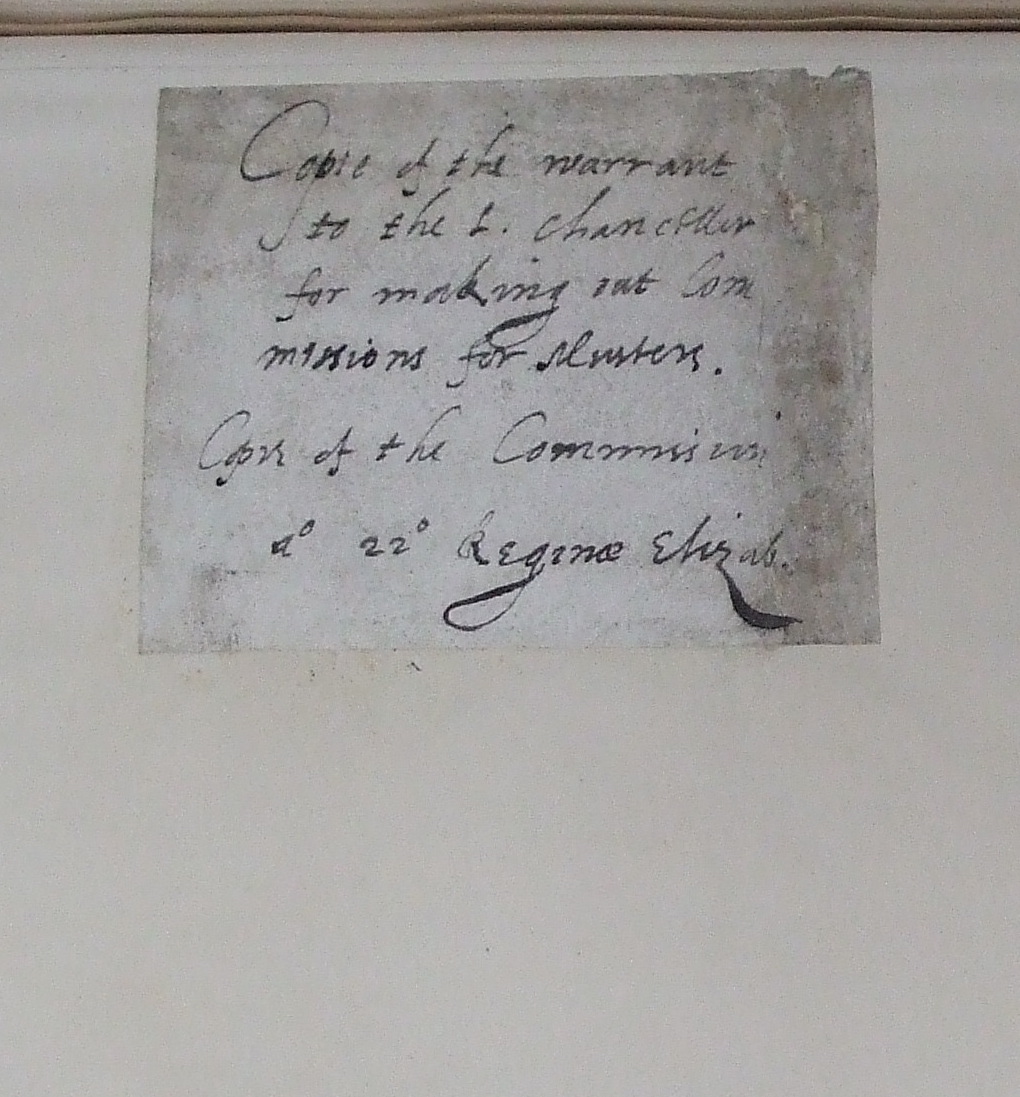 Copie of the warrant
to the L. Chanceller
for making out Com
missions for Musters.
Copie of the Commission
aº 22º Reginæ Elizab.